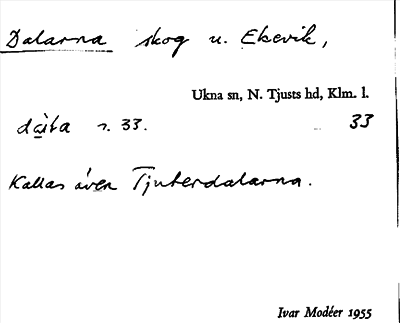 Dalarna skog u. Ekevik,
Ukna sn, N. Tjusts hd, Klm. l.
dàta r. 33. 33
Kallas även Tjuterdalarna.
Ivar Modéer 1955